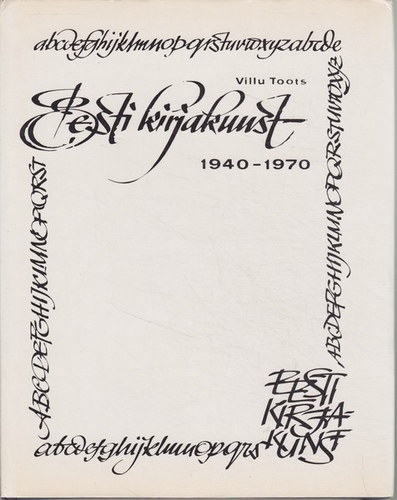 abcdefghijklmnopqrstuvwxyzabcde
Villu Toots
Eesti kirjakunst
1940-1970
ABCDEFGHIJKLMNOPQRSTUVWXYZ
ABCDEFGHIJKLMNOPQRST
EESTI
KIRJA-
KUNST
abcdefghijklmnopqrs